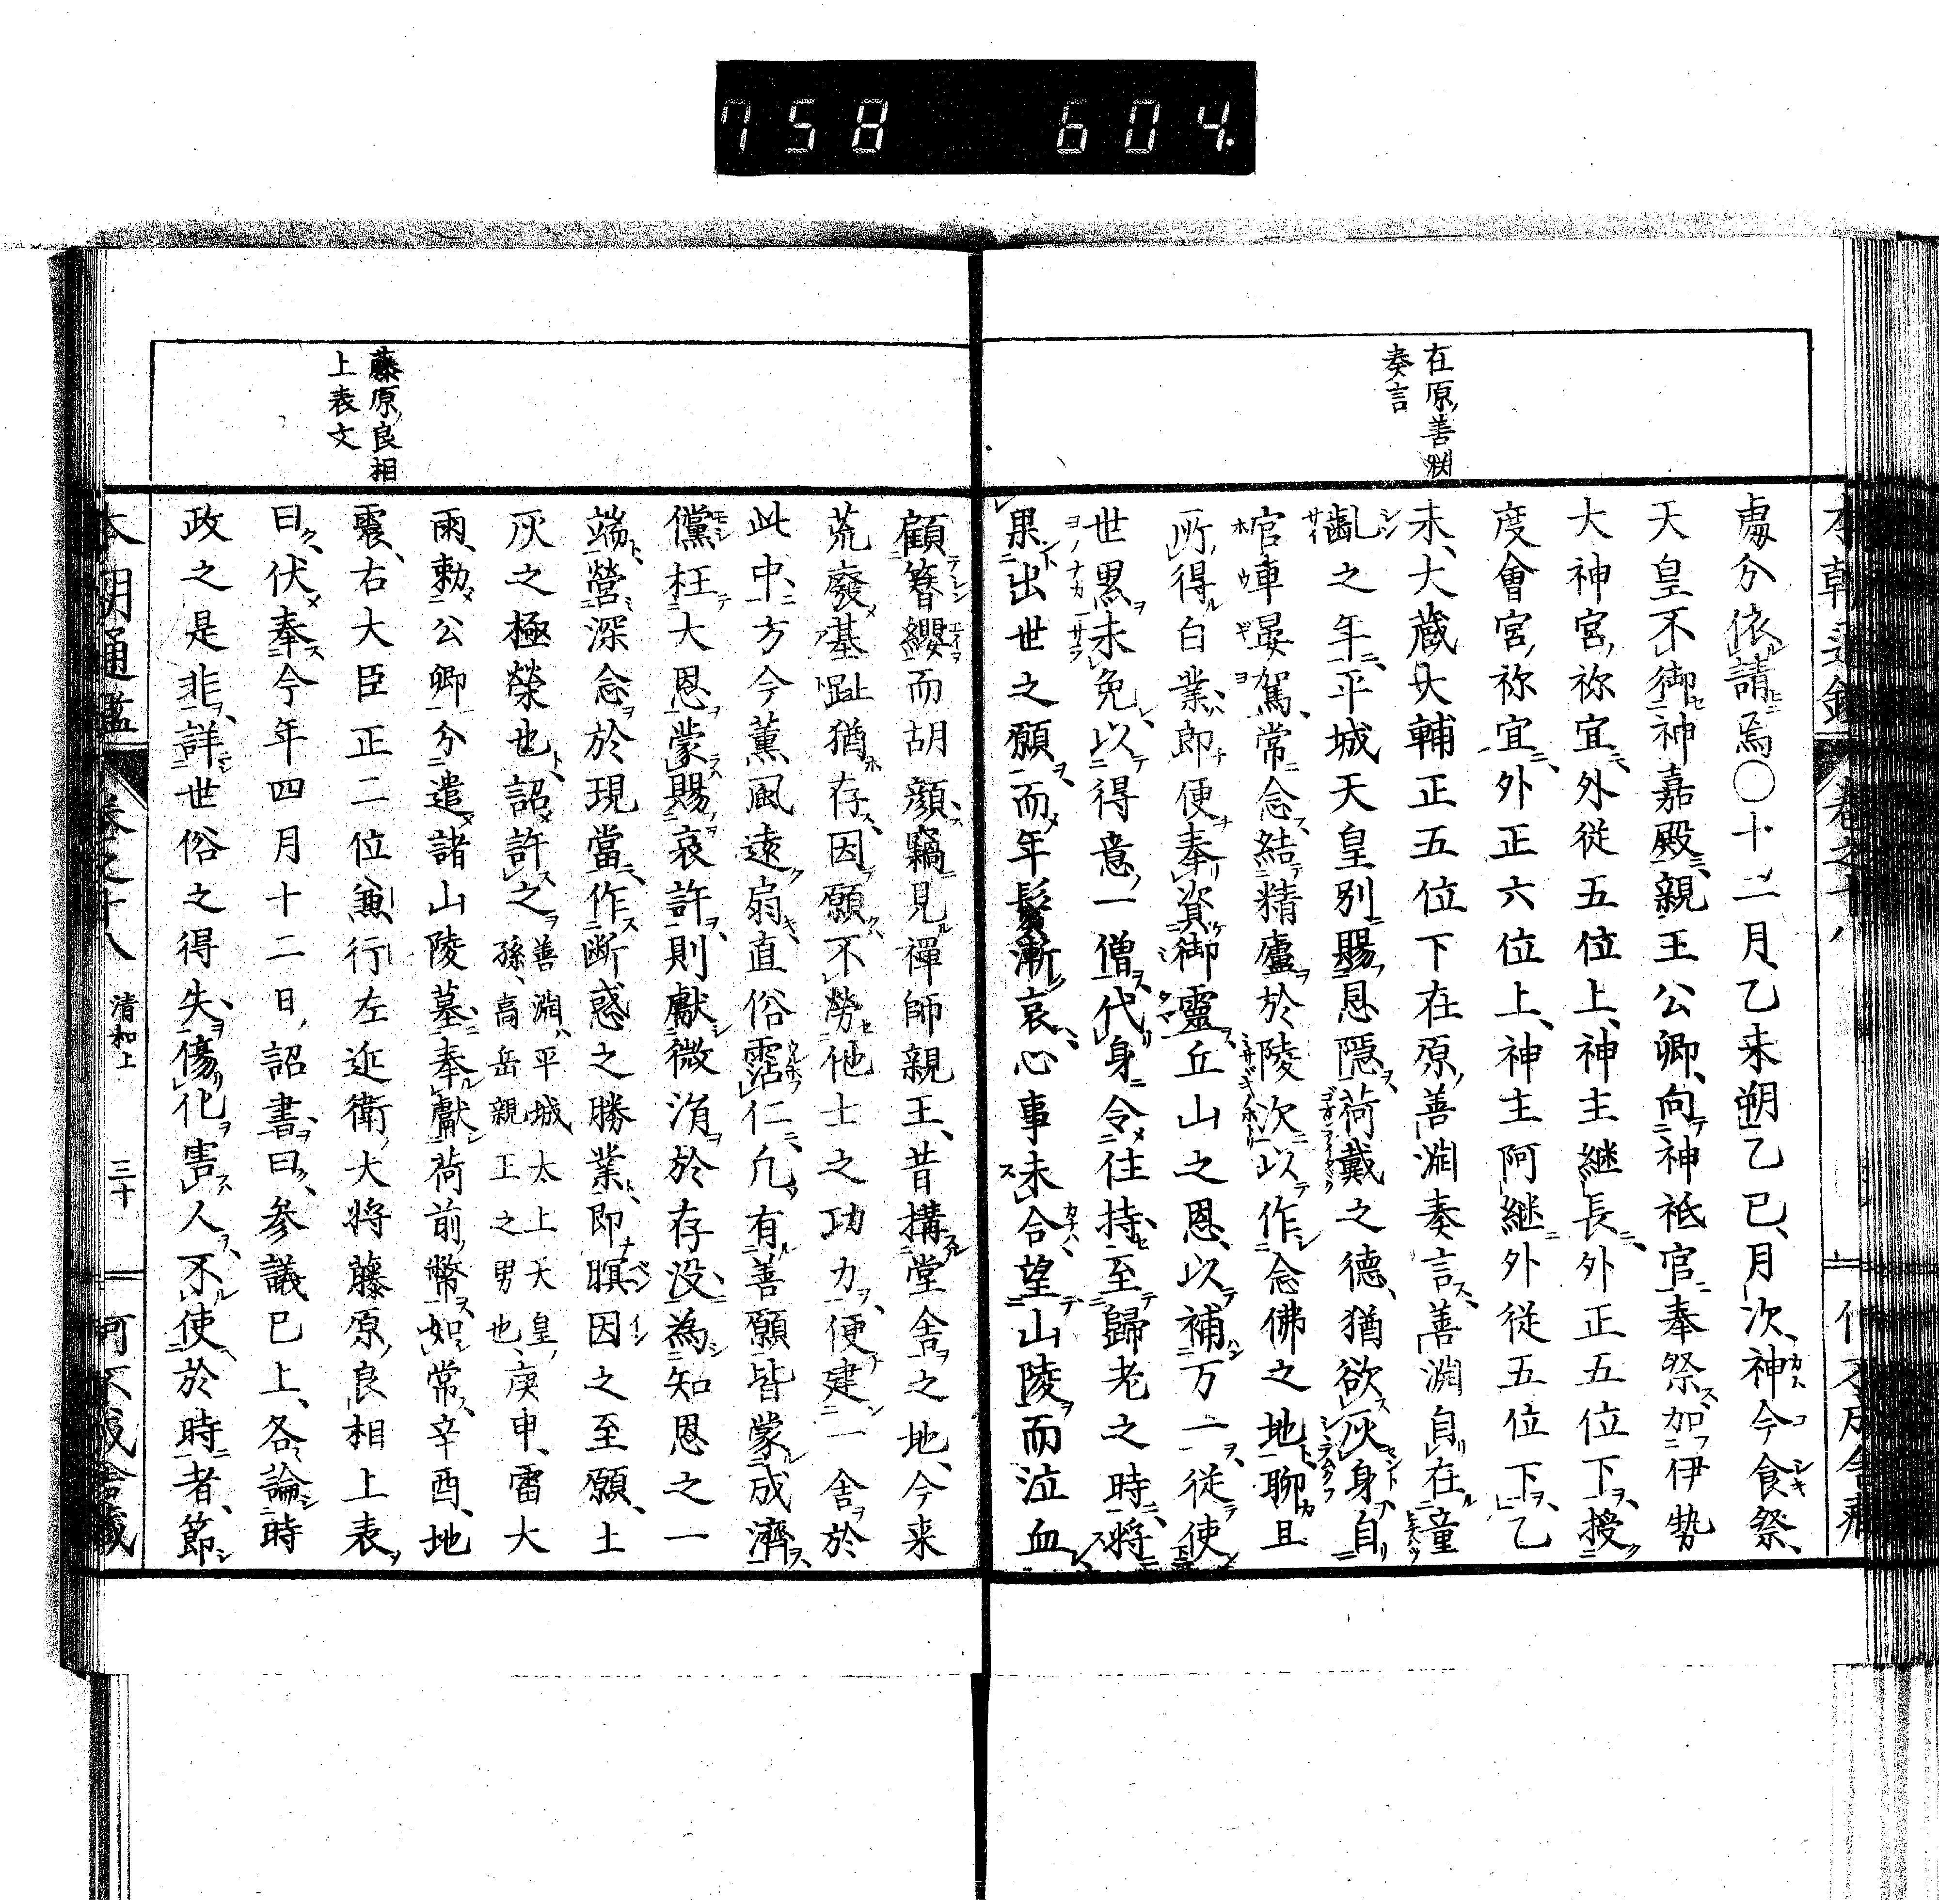 758 604.
在原善淵
奏言
處分依請焉○十二月乙未朔乙巳月次神今食祭
天皇不御神嘉殿親王公卿向神祇官奉祭加伊勢
大神宮祢宜外從五位上神主継長外正五位下授
度會宮祢宜外正六位上神主阿継外從五位下乙
未大蔵大輔正五位下在原善淵奏言善淵自在童
齓之年平城天皇別賜恩隠荷戴之德猶欲灰身自
官車晏駕常念結精廬於陵次以作念佛之地聊且
所得白業即便奉資御靈丘山之恩以補万一從使
世累未免以得意一僧代身令往持至歸老之時將
果出世之願而年鬓漸哀心事未合望山陵而泣血
藤原良相
上表文
顧簪纓而胡顔竊見禪師親王昔搆堂舎之地今来
荒廢基趾猶存因願不勞他士之功力便建一舎於
此中方今薫風遠扇直俗霑仁凢有善願皆蒙成濟
儻枉大恩蒙賜哀許則獻微涓於存没為知恩之一
端營深念於現當作断惑之勝業即瞑因之至願土
灰之極榮也詔許之善淵平城太上天皇
孫高岳親王之男也庚申雷大
雨勅公卿分遣諸山陵墓奉獻荷前幣如常辛酉地
震右大臣正二位兼行左近衛大将藤原良相上表
曰伏奉今年四月十二日詔書曰参議已上各論時
政之是非詳世俗之得失傷化害人不使於時者節
本朝通鑑 卷之十八 清和上 三十